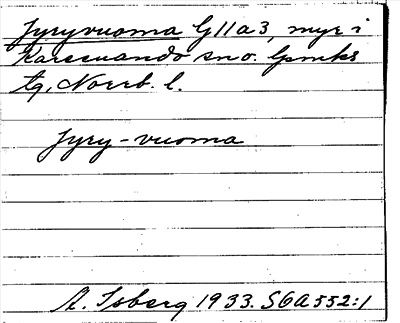 Jyryvuoma G11a3, myr i
Karesuando sn o. lpmks
tg, Norrb. l.
Jyry-vuoma
A. Isberg 1933. SGA 552:1